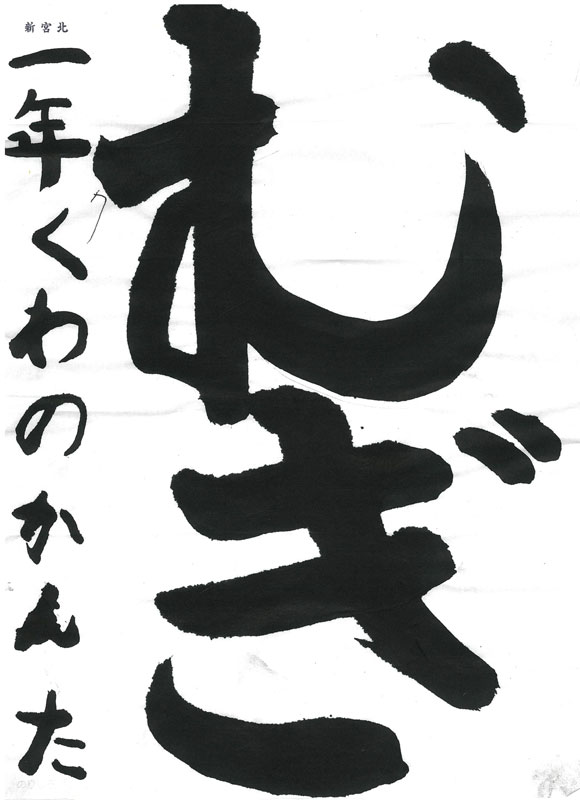 むぎ
北宮新
一年くわのかんた
カ